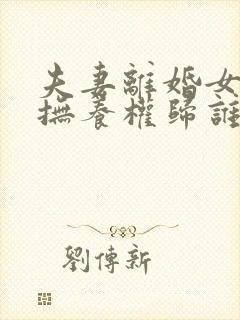 夫妻離婚女
撫養權歸誰
劉傳新